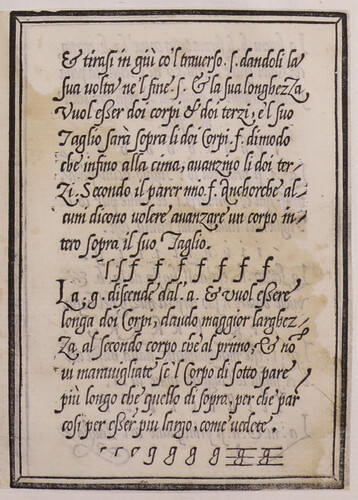 & tirasi in giù co'l traverso .s. dandoli la
sua volta ne'l fine .s. & la sua longhezza
vuol esser doi corpi & doi terzi, e'l suo
Taglio sarà sopra li doi Corpi .f. dimodo
che infino alla cima, avanzino li doi ter-
zi. Secondo il parer mio .f. Anchorche al-
cuni dicono volere avanzare un corpo in-
tero sopra il suo Taglio.
ı ſ ſ f f f f f f f
La .g. discende dal .a. & vuol essere
longa doi Corpi, dando maggior larghez-
za, al secondo corpo che al primo, & nõ
vi maravigliate se'l Corpo di sotto pare
più longo che quello di sopra, per che par
cosi per esser piu largo. come vedete.
g g g g g